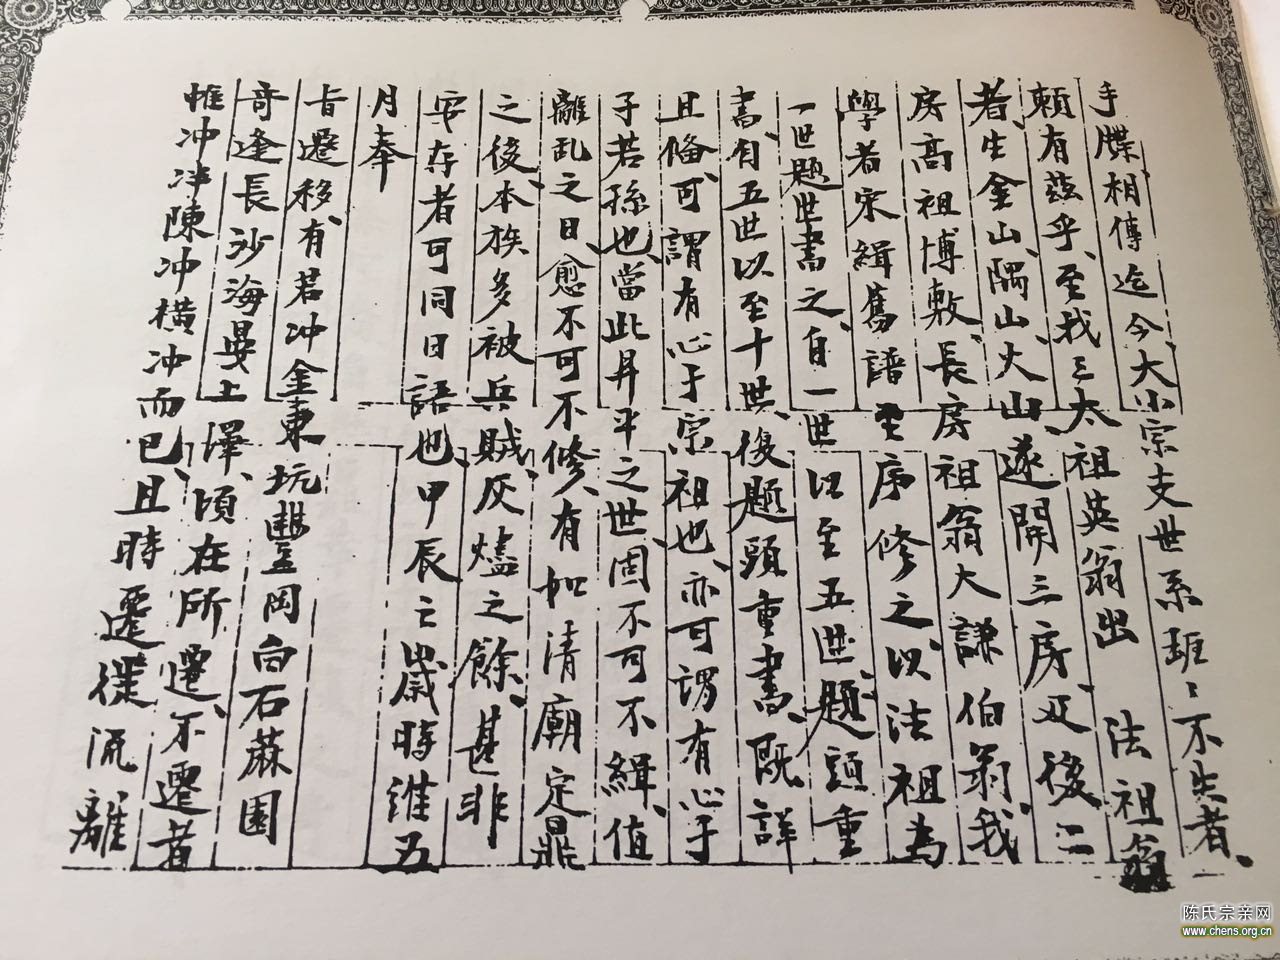 手牒相傳迄今大小宗支世系班〻不失者
頼有茲乎至我三太祖英翁出 法祖翁
者生金山隅山火山遂開三房及後二
房高祖博敷長房祖翁大謙伯翁我
學者宋緝舊譜 序修之以法祖為
一世題世書之自一世以至五世題頭重
書自五世以至十世復題頭重書既詳
且俻可謂有心于宗祖也亦可謂有心于
子若孫也當此昇平之世固不可不緝值
離乱之日愈不可不修有如清廟定鼎
之後本族多被兵賊灰燼之餘甚非
安存者可同日語也甲辰之歲時維五
月奉
旨遷移有若冲金東坑豐岡白石蔴園
奇逢長沙海晏上澤頃在所遷不遷者
惟冲冲陳冲橫冲而已且時遷徙流離
陈氏宗亲网
www.chens.org.cn